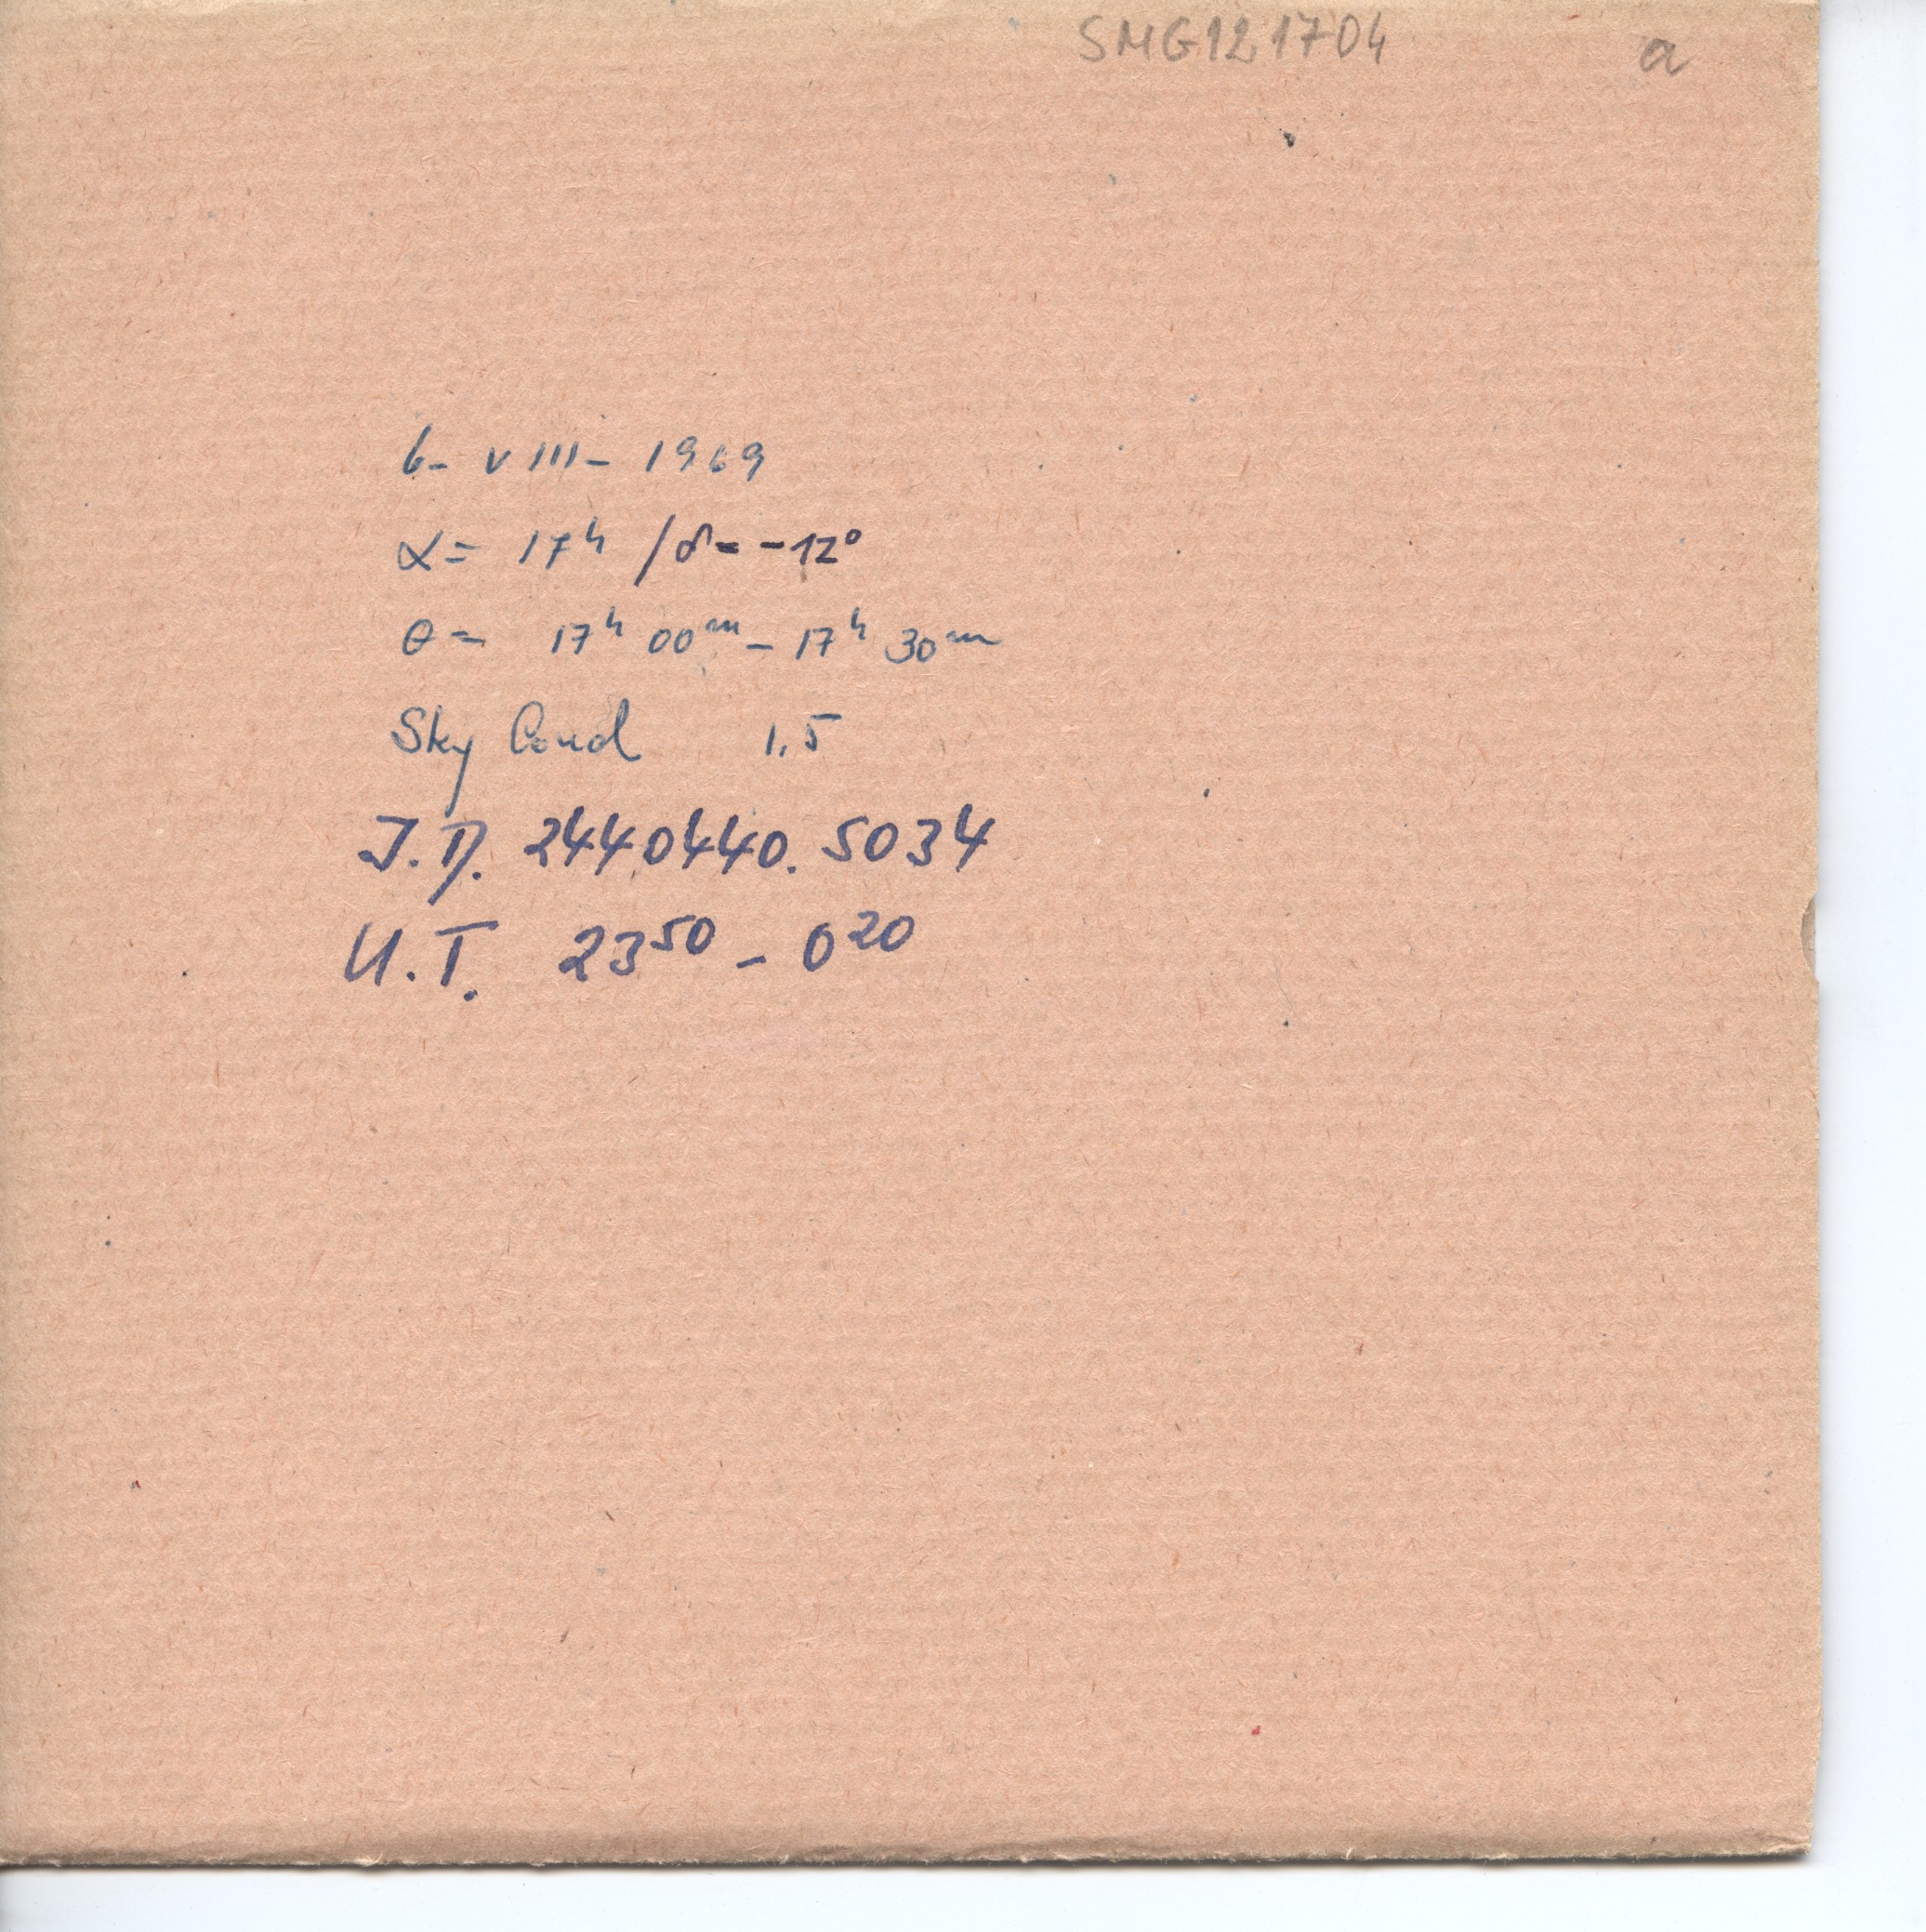 SMG121704 a
6- VIII- 1969
α= 17ʰ /δ= -12°
θ= 17ʰ 00ᵐ - 17ʰ 30ᵐ
Sky Cond 1.5
J.D. 2440440.5034
U.T. 23⁵⁰ - 0²⁰